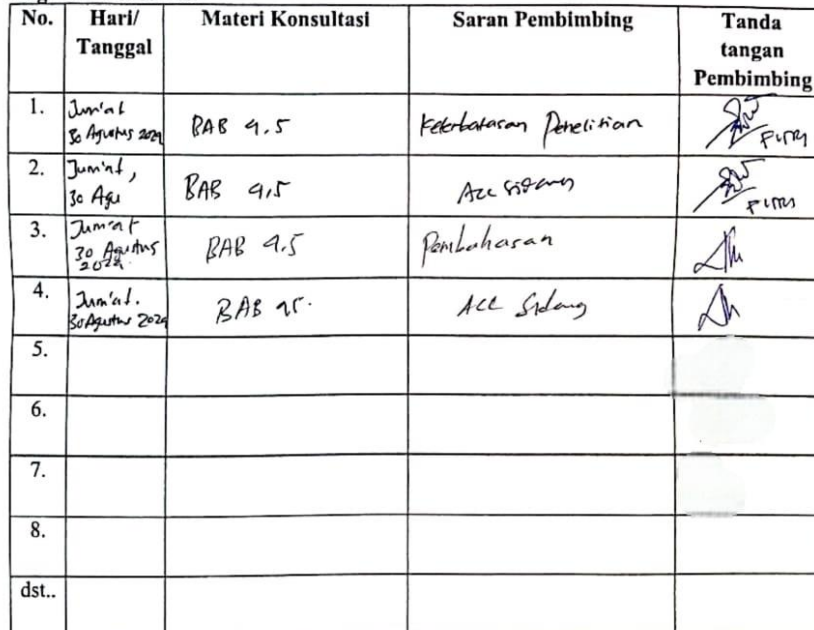 No. Hari/ Materi Konsultasi Saran Pembimbing Tanda
Tanggal tangan
Pembimbing
1. Jum'at
30 Agustus 2024 BAB 4.5 Keterbatasan Penelitian PUTRI
2. Jum'at,
30 Agu BAB 4,5 Acc sidang PUTRI
3. Jum'at
30 Agustus BAB 4.5 Pembahasan
2024.
4. Jum'at.
30 Agustus 2024 BAB 45. ACC Sidang
5.
6.
7.
8.
dst..